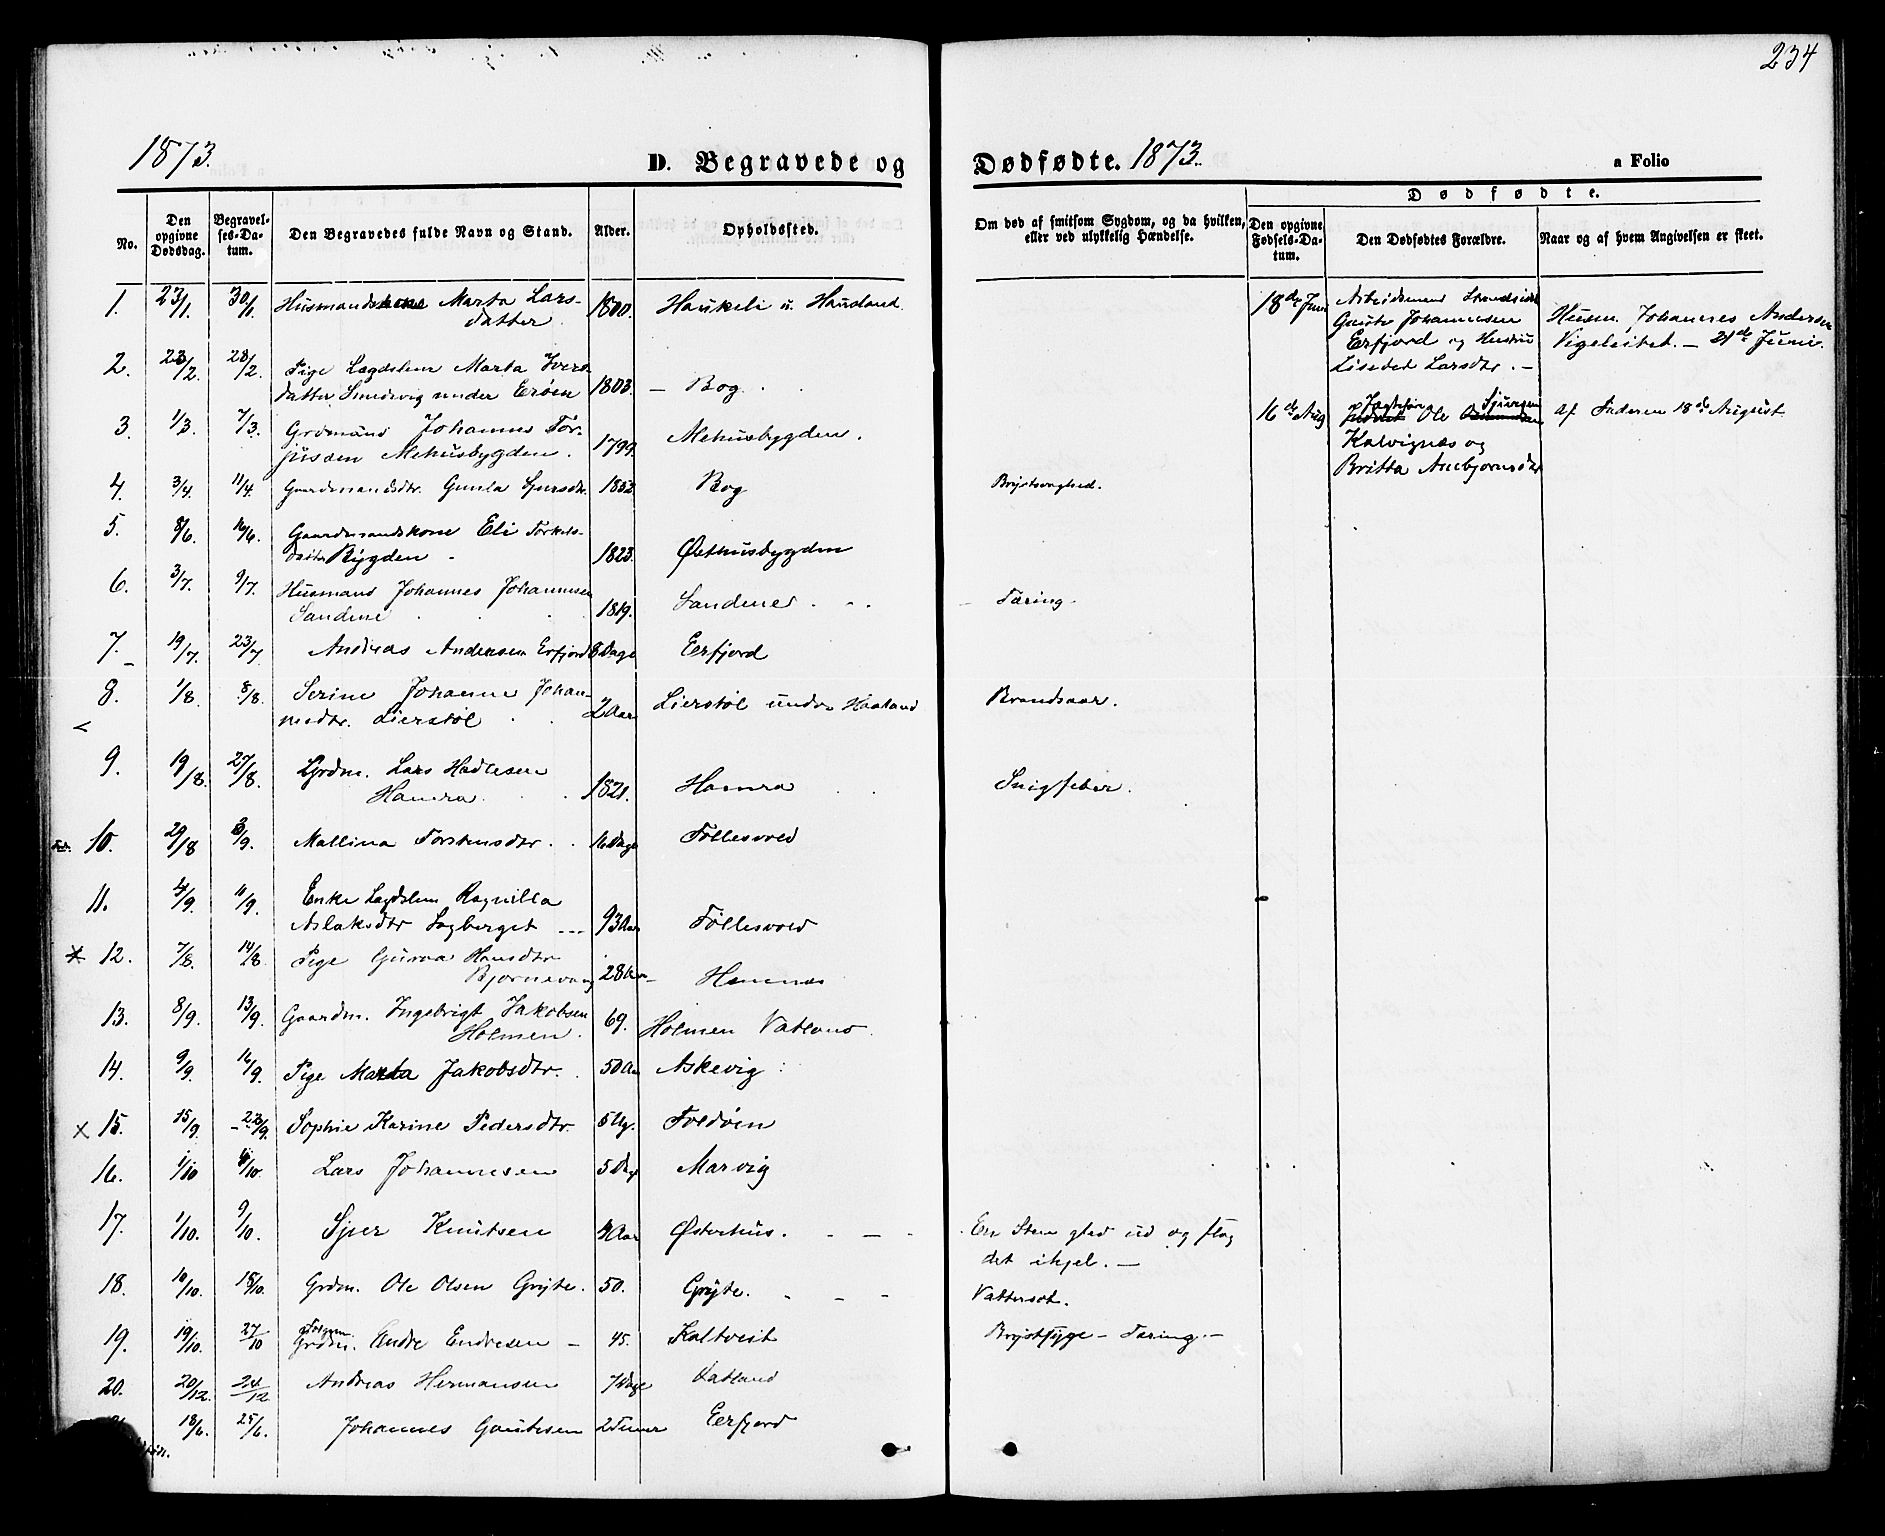 234
1873.
D. Begravede og
Dødfødte. 1873.
a Folio
No.
Den opgivne Dødsdag.
Begravelses-Datum.
Den Begravedes fulde Navn og Stand.
Alder.
Opholdssted.
Om død af smitsom Sygdom, og da hvilken, eller ved ulykkelig Hændelse.
Dødfødte.
Den opgivne Fødsels-Datum.
Den Dødfødtes Forældre.
Naar og af hvem Angivelsen er skeet.
1. 23/1. 30/1. Husmandskone Marta Lars-
datter. 1800. Haukeli u. Hauland.
2. 23/2. 28/2. Pige Lægdslem Marta Ivers-
datter Smedsvig under Erøen 1803. – Bog.
3. 1/3. 7/3. Grdmand Johannes Tor-
jussen Mehusbygden. 1799. Mehusbygden.
4. 3/4. 11/4. Gaardmandsdtr. Gunla Sjursdtr. 1852. Bog Brystsvaghed.
5. 8/6. 16/6. Gaardmandskone Eli Torkels-
datter Bygden 1823. Østhusbygden
6. 3/7. 9/7. Husmand Johannes Johannesen
Sandene 1819. Sandene. Tæring.
7. 19/7. 23/7 Andreas Andersen Erfjord 8 Dage Eerfjord
8. 1/8. 8/8. Serine Johanne Johan-
nesdtr. Lierstøl 2 Aar Lierstøl under Haaland Brandsaar.
9. 19/8. 27/8. Grdm. Lars Hadlesen
Hamra. 1821. Hamra Snigfeber.
10. 29/8 3/9. Mallina Torstensdtr. 16 Dage Tøllesvold
11. 4/9. 11/9. Enke Lægdslem Ragnilla
Aslaksdtr Lagberget 93 Aar Tøllesvold
12. 7/8. 14/8. Pige Gurva Hansdtr
Bjørnevang 28 Aar Hennes
13. 8/9. 13/9. Gaardm. Ingebrigt Jakobsen
Holmen. 69. Holmen Vatland.
14. 9/9. 16/9. Pige Marta Jakobsdtr. 50 Aar Askevig
15. 15/9. 23/9. Sophie Karine Pedersdtr. 5 Ug. Foldøen
16. 1/10 /10. Lars Johannesen 5 Dage Marvig
17. 1/10. 9/10. Sjur Knutsen 4 Aar Østerhus. En Sten gled ud og slog
det ihjel. –
18. 10/10. 15/10. Grdm. Ole Olsen Grøte. 50. Grøte. Vattersot.
19. 19/10. 27/10 Grdm. Andre Endresen – 45. Kaltveit Brystsyge – Tæring. –
20. 20/12. 24/12 Andreas Hermansen 7 Dage Vatland
18/6. 25/6. Johannes Gautesen 2 Timer Eerfjord
18de Juni Arbeidsmand Strandsidder
Gaute Johannesen
Erfjord og Hustru
Lisebet Larsdtr. –
Husm. Johannes Andersen
Vigeleitet. – 21de Juni.
16de Aug Ole Sjursen
Kalvignæs og
Britta Anbjørnsdtr
Af Faderen 18de August